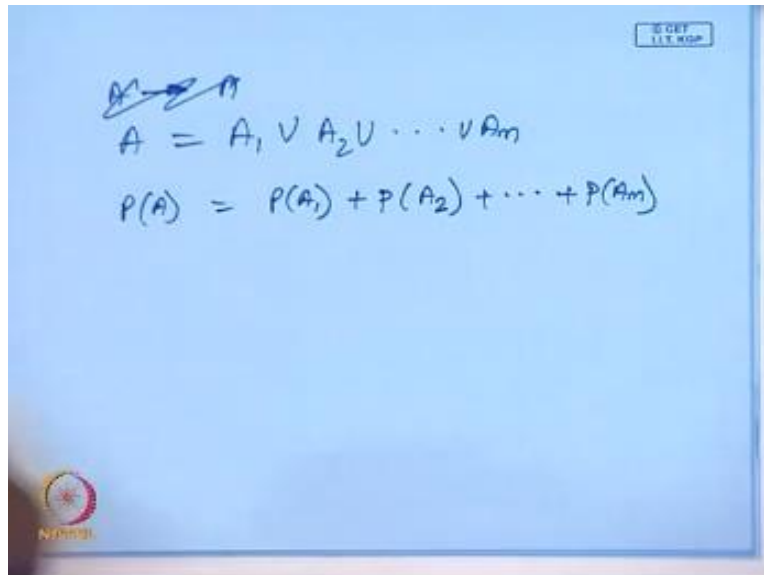 © CET
I.I.T. KGP
A = A₁ ∪ A₂ ∪ ··· ∪ Am
P(A) = P(A₁) + P(A₂) + ··· + P(Am)
NPTEL